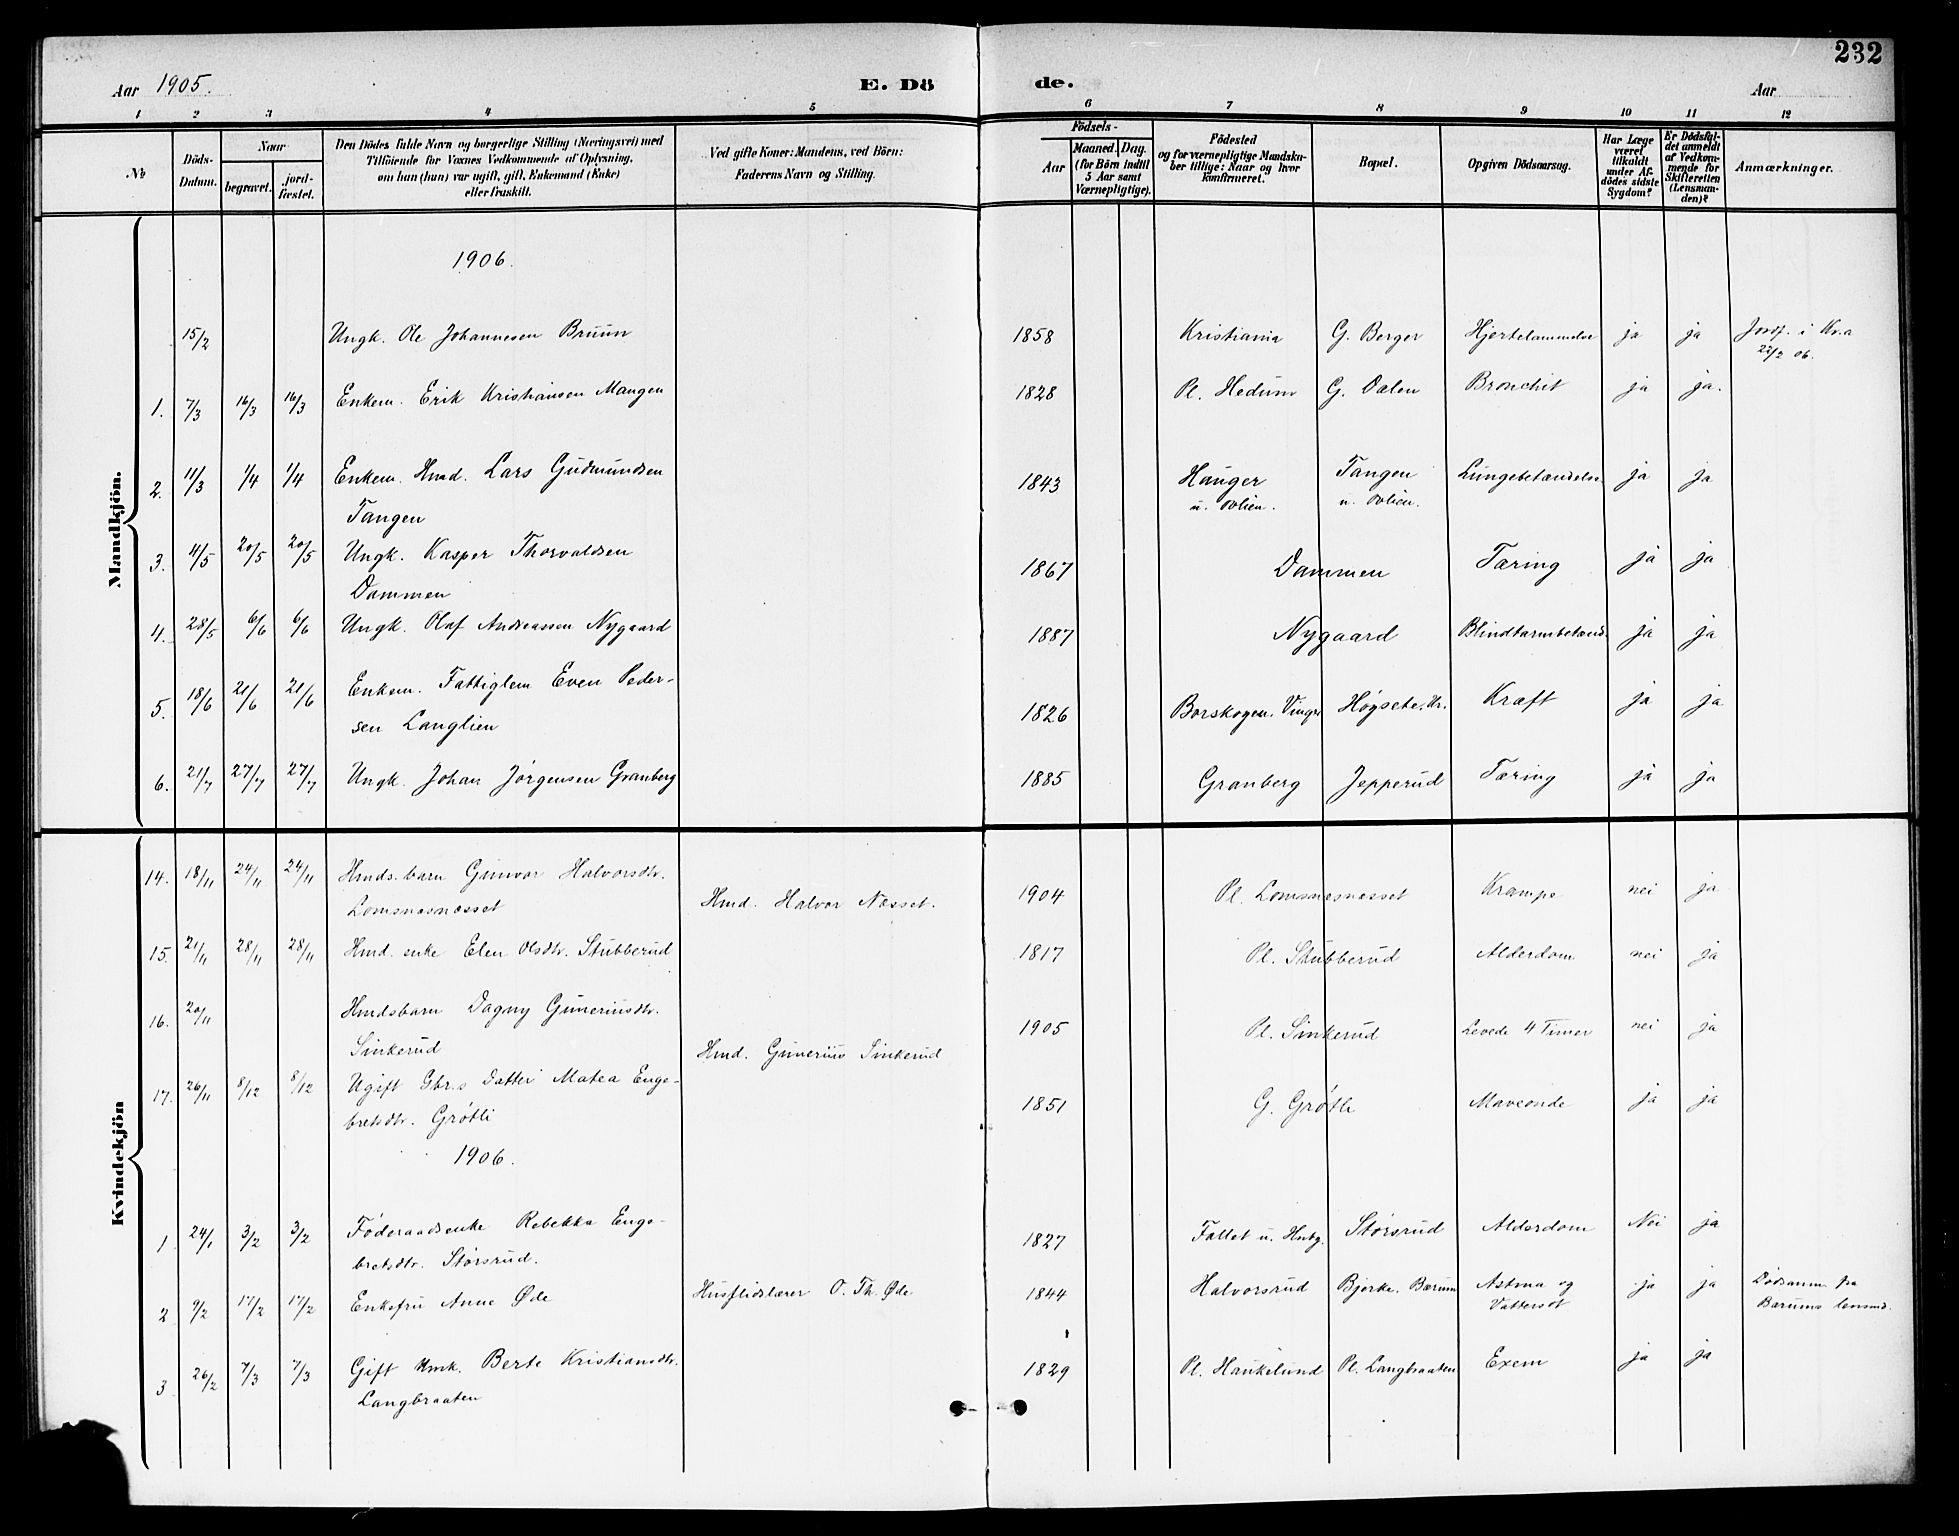 232
Aar 1905. E. Dö de. Aar
1 2 3 4 5 6 7 8 9 10 11 12
No
Döds-Datum.
Naar
begravet.
jord-fæstet.
Den Dödes fulde Navn og borgerlige Stilling (Næringsvei) med
Tilföiende for Voxnes Vedkommende af Oplysning,
om han (hun) var ugift, gift, Enkemand (Enke)
eller fraskilt.
Ved gifte Koner: Mandens, ved Börn:
Faderens Navn og Stilling.
Födsels-
Aar
Maaned. Dag.
(for Börn indtil
5 Aar samt
Værnepligtige).
Födested
og for værnepligtige Mandska-
ber tillige: Naar og hvor
konfirmeret.
Bopæl.
Opgiven Dödsaarsag.
Har Læge
været
tilkaldt
under Af-
dödes sidste
Sygdom?
Er Dödsfal-
det anmeldt
af Vedkom-
mende for
Skifteretten
(Lensman-
den)?
Anmærkninger.
Mandkjön.
1906.
15/2 Ungk. Ole Johannesen Bruun 1858 Kristiania G. Berger Hjertelammelse ja ja Jordf. i Kr.a
22/2 06.
1. 7/3 16/3 16/3 Enkem. Erik Kristiansen Mangen 1828 Pl. Hedum G. Dalen Bronchit ja ja.
2. 11/3 1/4 1/4 Enkem. Hmd. Lars Gudmundsen 1843 Hauger Tangen Lungebetændelse ja ja
Tangen u. Ovlien. u. Ovlien.
3. 4/5 20/5 20/5 Ungk. Kasper Thorvaldsen 1867 Dammen Tæring ja ja
Dammen
4. 28/5 6/6 6/6 Ungk. Olaf Andreassen Nygaard 1887 Nygaard Blindtarmbetænd. ja ja
5. 18/6 21/6 21/6 Enkem. Fattiglem Even Peder-
sen Langlien 1826 Borskogen, Vinger Høgsete, Ur. Kræft ja ja
6. 21/7 27/7 27/7 Ungk. Johan Jørgensen Granberg 1885 Granberg Jepperud Tæring ja ja
Kvindekjön
14. 18/11 24/11 24/11 Hmds. barn Gunvor Halvorsdtr.
Lomsnæsnæsset Hmd. Halvor Næsset. 1904 Pl. Lomsnæsnæsset Krampe nei ja
15. 21/11 28/11 28/11 Hmd. enke Elen Olsdtr. Stubberud 1817 Pl. Stubberud Alderdom nei ja
16. 20/11 Hmdsbarn Dagny Guneriusdtr. 1905 Pl. Sinkerud Levede 4 Timer nei ja
Sinkerud Hmd. Gunerius Sinkerud
17. 26/11 8/12 8/12 Ugift Gbr.s Datter Matea Enge-
bretsdtr. Grøtli 1851 G. Grøtli Maveonde ja ja
1906.
1 24/1 3/2 3/2 Føderaadsenke Rebekka Enge-
bretsdtr. Størsrud. 1827 Fallet u. Størsrud Alderdom Nei ja
2 9/2 17/2 17/2 Enkefru Anne Øde Husflidslærer O. Th. Øde 1844 Halvorsrud Bjerke, Bærum Astma og ja ja Dødsanm. fra
Vattersot Bærums lensmd.
3 26/2 7/3 7/3 Gift Hmk. Berte Kristiansdtr. 1829 Pl. Haukelund Pl. Langbraaten Exem ja ja
Langbraaten